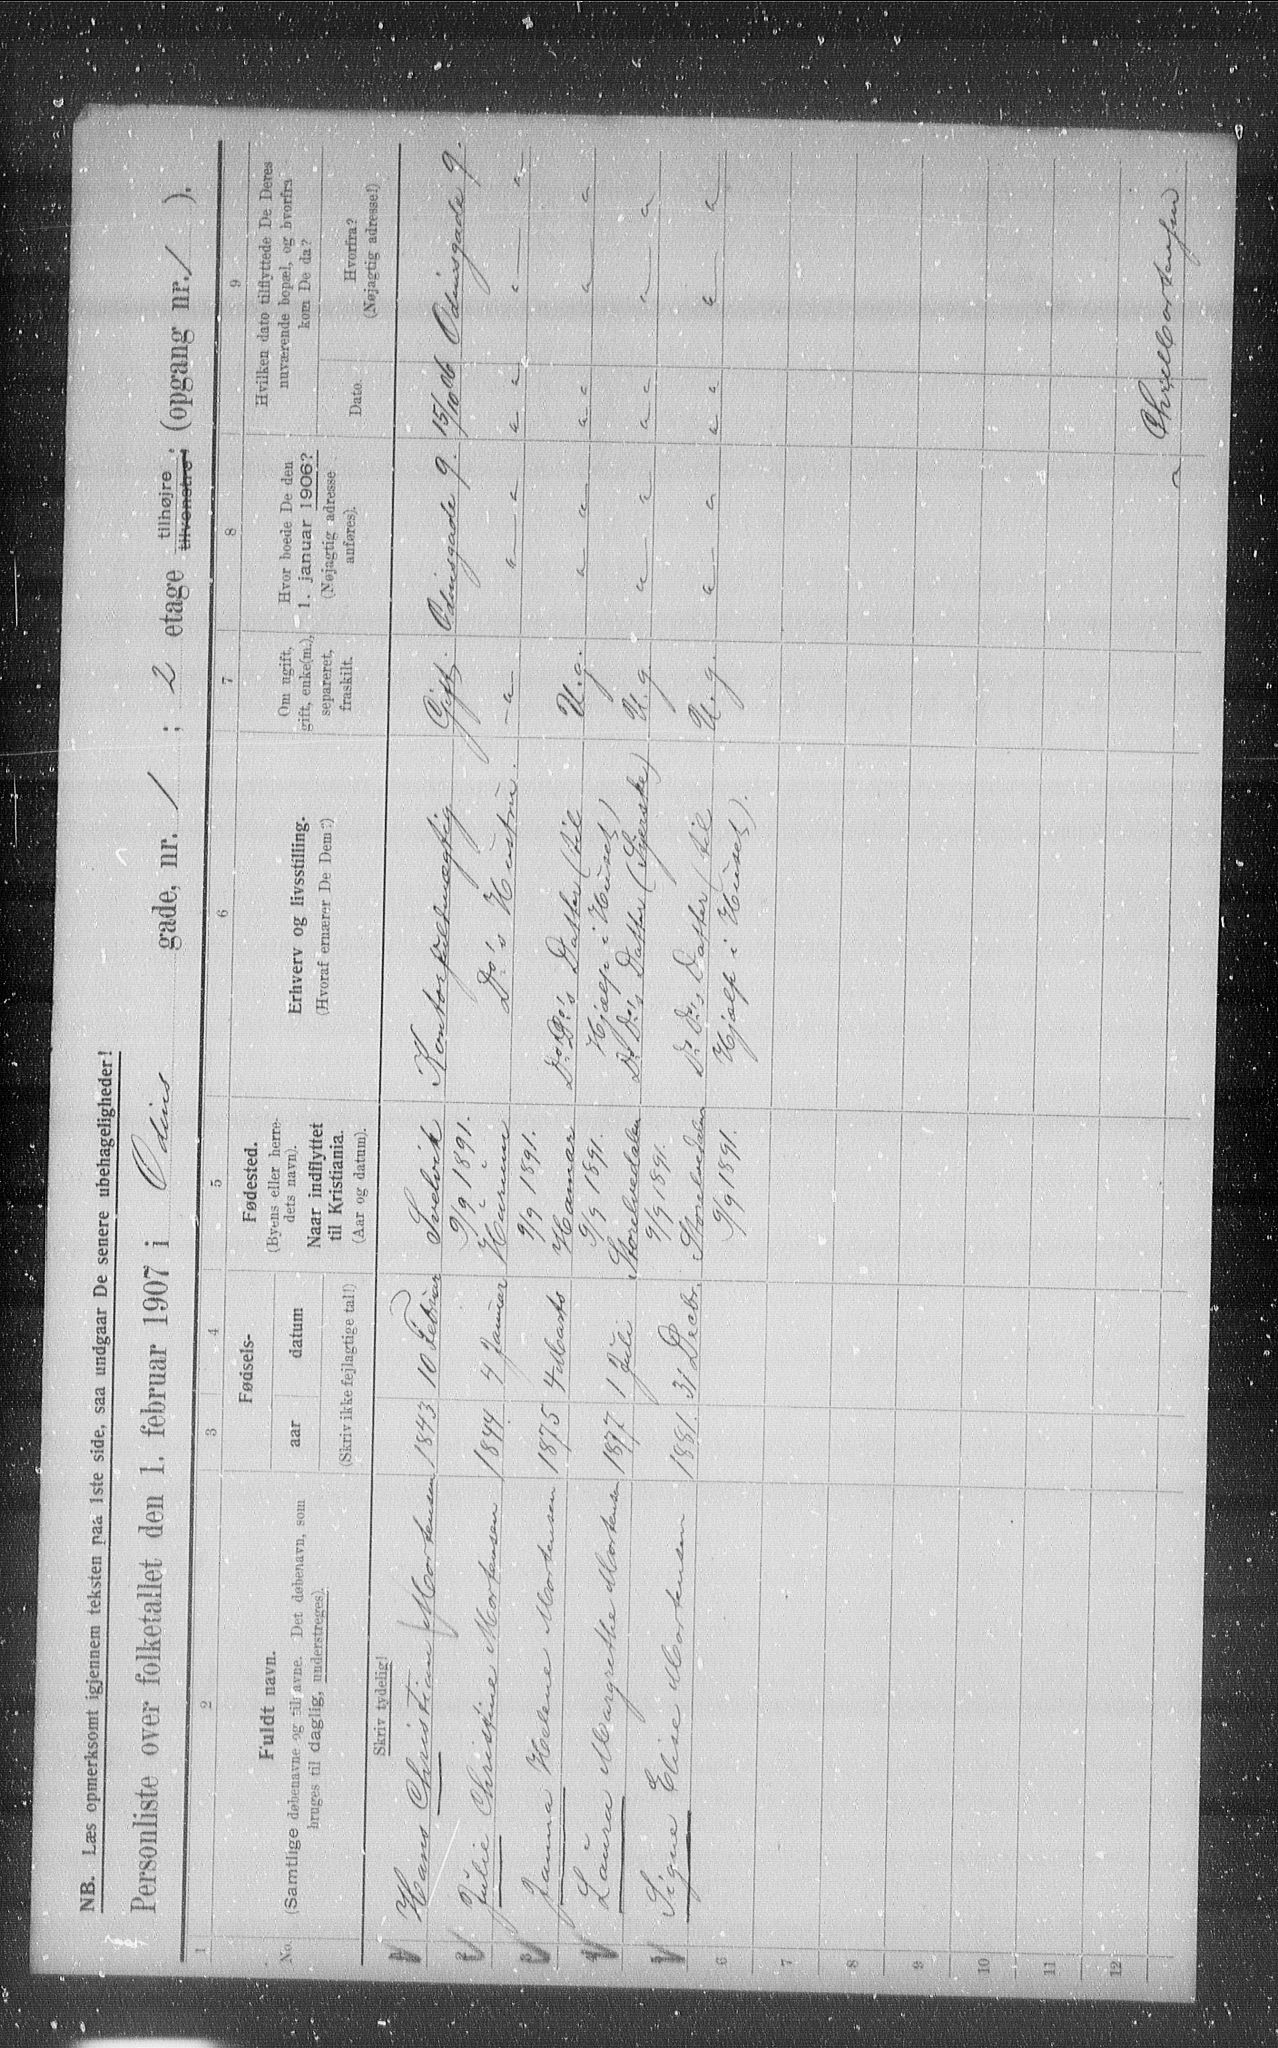 NB. Læs opmerksomt igjennem teksten paa 1ste side, saa undgaar De senere ubehageligheder!
Personliste over folketallet den 1. februar 1907 i Odins gade, nr. 1 ; 2 etage tilhøjre, tilvenstre, (opgang nr. / ).
1 2 3 4 5 6 7 8 9
No.
Fuldt navn.
(Samtlige døbenavne og tilnavne. Det døbenavn, som
bruges til daglig, understreges).
Fødsels-
aar datum
(Skriv ikke fejlagtige tal!)
Fødested.
(Byens eller herre-
dets navn).
Naar indflyttet
til Kristiania.
(Aar og datum).
Erhverv og livsstilling.
(Hvoraf ernærer De Dem?)
Om ugift,
gift, enke(m.),
separeret,
fraskilt.
Hvor boede De den
1. januar 1906?
(Nøjagtig adresse
anføres).
Hvilken dato tilflyttede De Deres
nuværende bopæl, og hvorfra
kom De da?
Dato. Hvorfra?
(Nøjagtig adresse!)
Skriv tydelig!
1 Hans Christian Mortensen 1843 10 Februar Svelvik Kontorfuldmægtig Gift. Odinsgade 9. 15/10 06 Odinsgade 9.
9/9 1891.
2 Julie Christine Mortensen 1844 4 Januar Hurum Do's Hustru. - " - " - " " " " - "
9/9 1891.
3 Janna Helene Mortensen 1875 4 Marts Hamar Do. Do's Datter (til U.g. " - " " " " - "
9/9 1891. Hjælp i Huset)
4 Laura Margrethe Mortensen 1877 1 Juli Storelvedalen Do. Do's Datter (Syerske) U.g. " - " " " " - "
9/9 1891.
5 Signe Elise Mortensen 1881. 31 Decbr. Storelvedalen Do. Do's Datter (til U.g. " - " " " " - "
9/9 1891. Hjælp i Huset).
6
7
8
9
10
11
12
Chr. Mortensen